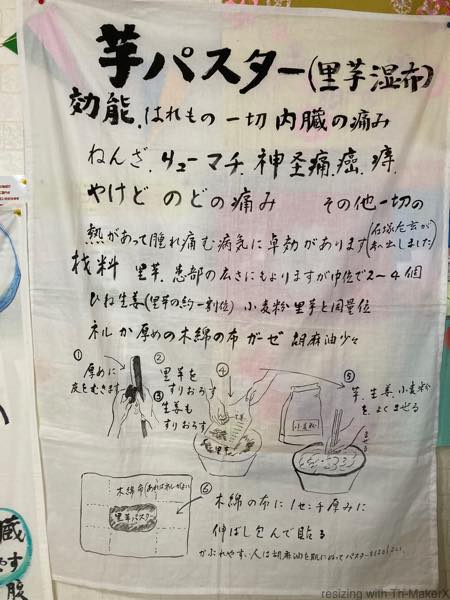 芋パスター(里芋湿布)
効能、はれもの 一切 内臓の痛み
ねんざ、リューマチ、神圣痛、癌、痔、
やけど のどの痛み その他一切の
熱があって腫れ痛む病気に卓効があります(石塚左玄が
あみ出しました)
材料 里芋、患部の広さにもよりますが中位で2〜4個
ひね生姜(里芋の約一割位) 小麦粉 里芋と同量位
ネルか厚めの木綿の布 ガーゼ 胡麻油少々
①
厚めに
皮をむきます
②
里芋を
すりおろす
③
生姜も
すりおろす
④
生姜
里芋
小麦粉
⑤
芋、生姜、小麦粉
を、よくまぜる
まぜる
木綿布(あればネルがよい)
里芋パスター
⑥
木綿の布に1センチ厚みに
伸ばし包んで貼る
かぶれやすい人は胡麻油を肌にぬってパスターをはるとよい。
resizing with Th-MakerX